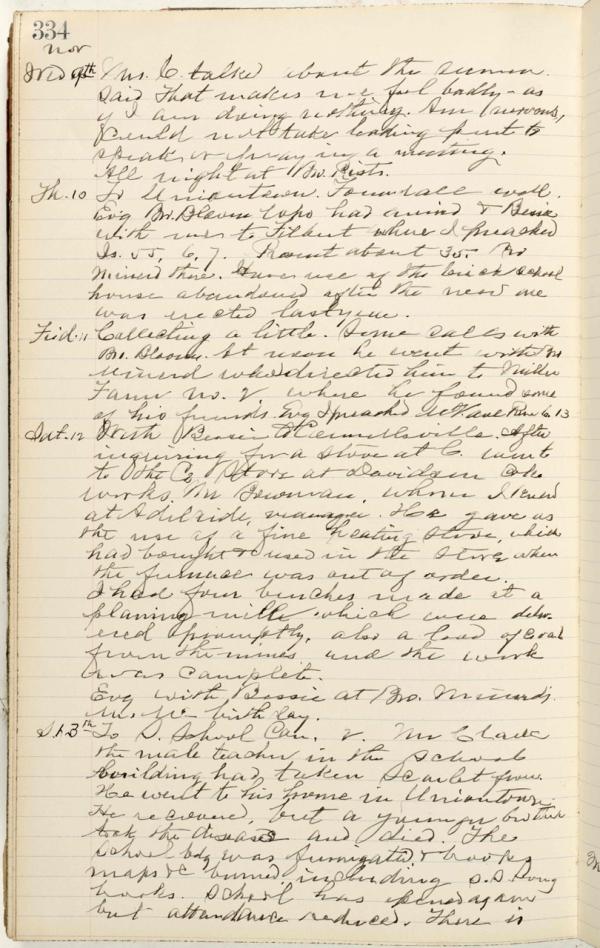 334
Nov
Wed 9th Mrs. C. talked about the sermon.
Said That makes me feel badly - as
if I am doing nothing. Am nervous,
Could not take leading part to
speak or pray in a meeting.
All night at Bro. Rists.
Th. 10 To Uniontown.
Evg Bro. Bloom who had arrived & Bessie
with me to Filbert where I preached
Is. 55, 6, 7. Present about 35. Bro
Minerd there. Have use of the brick school
house abandoned after the new one
was erected last year.
Frid. 11 Collecting a little. Some calls with
Bro. Bloom. At noon he went with Bro
Minerd who directed him to
Farm No. 2 where he found some
of his friends. Evg I preached 6 13
Sat. 12 With Bessie to Connellsville. After
inquiring for a stove at C. went
to the Co. Store at Davidson Coke
works. Mr Bowman, whom I
at Adelaide, manager. He gave us
the use of a fine heating stove, which
had bought & used in the store when
the furnace was out of order.
I had four benches made at a
planing mill which were deliv-
ered promptly, also a load of coal
from the mines and the work
was complete.
Evg with Bessie at Bro. Minerds.
birthday.
S. 13th To S. School Con. 2. Mr Clark
the male teacher in the school
building had taken Scarlet fever.
He went to his home in Uniontown
He recovered, but a younger brother
took the disease and died. The
school bdg was fumigated & books
maps &c burned including S.S. song
books. School has opened again
but attendance reduced. There is